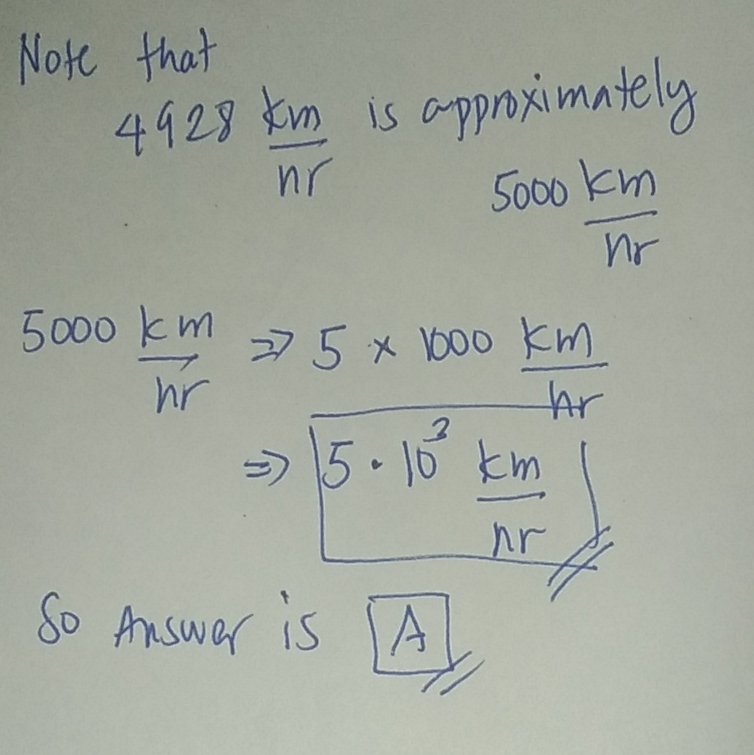 Note that
4928 km/hr is approximately
5000 km/hr
5000 km/hr ⇒ 5 × 1000 km/hr
⇒ 5 · 10³ km/hr
So Answer is A